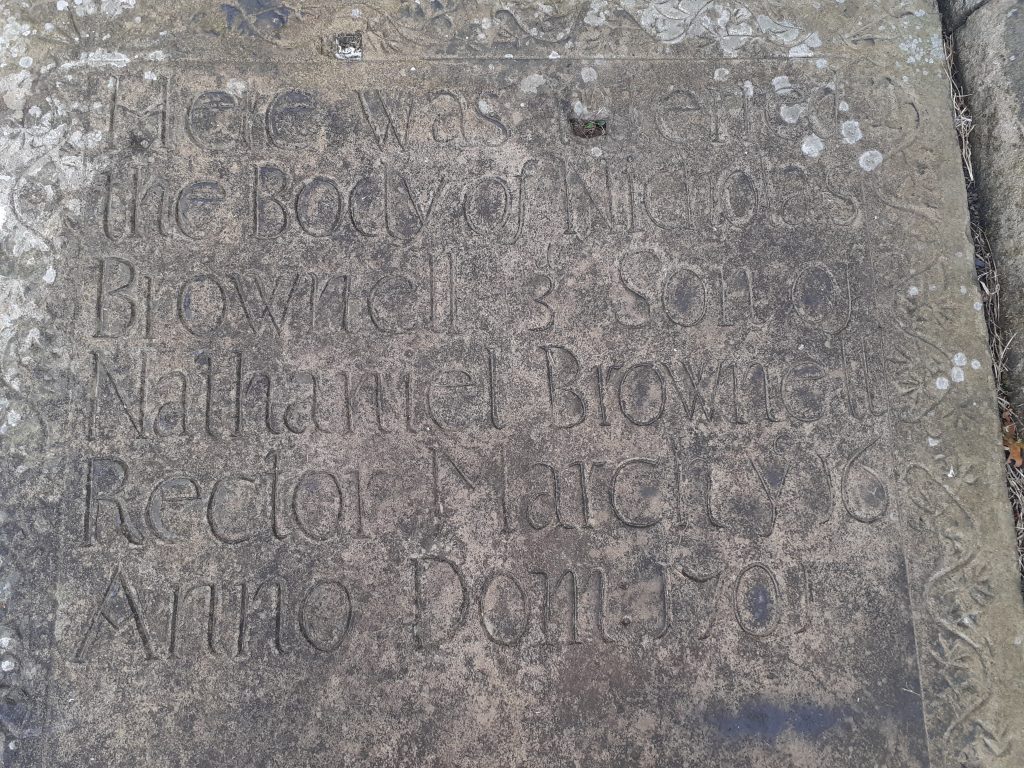 Here was Interred
the Body of Nicholas
Brownell 3d Son of
Nathaniel Brownell
Rector March ye 16
Anno Dom: 1701